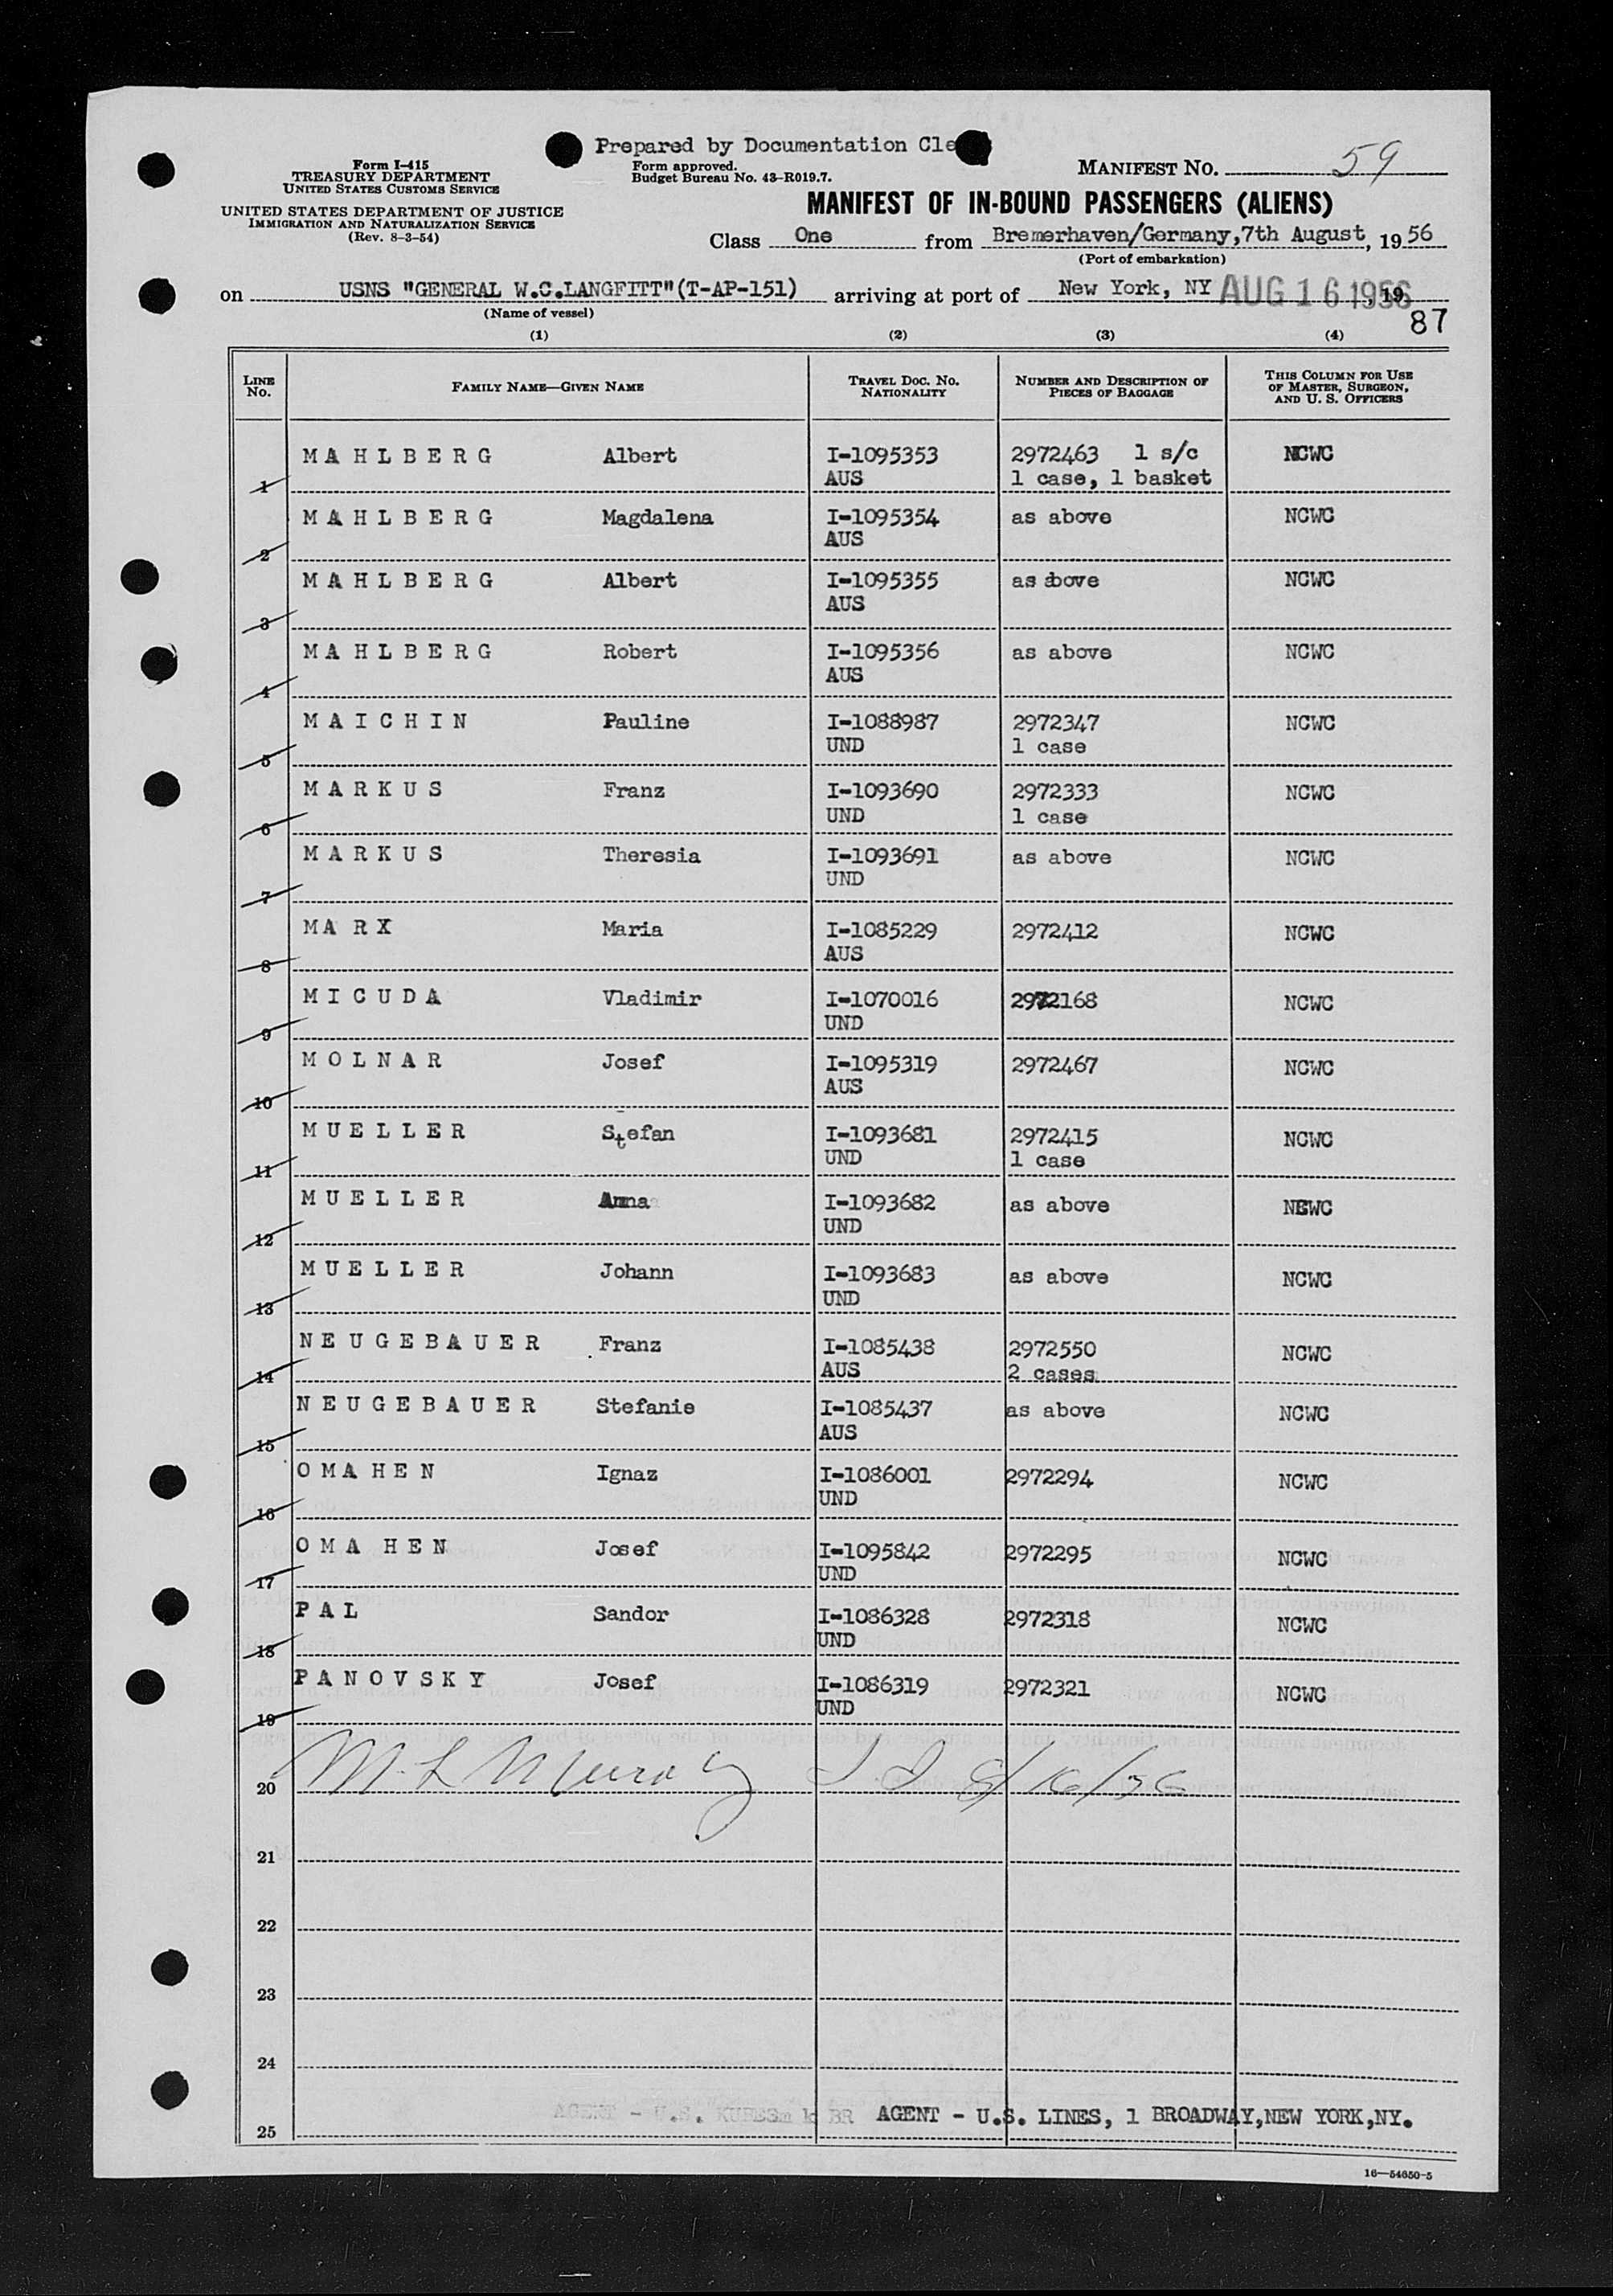 Prepared by Documentation Cle
Form I-415
TREASURY DEPARTMENT
UNITED STATES CUSTOMS SERVICE
UNITED STATES DEPARTMENT OF JUSTICE
IMMIGRATION AND NATURALIZATION SERVICE
(Rev. 8-3-54)
Form approved.
Budget Bureau No. 43-R019.7.
MANIFEST NO. 59
MANIFEST OF IN-BOUND PASSENGERS (ALIENS)
Class One from Bremerhaven/Germany,7th August, 1956
(Port of embarkation)
on USNS "GENERAL W.C.LANGFITT"(T-AP-151) arriving at port of New York, NY AUG 16 1956, 19
(Name of vessel)
87
(1) (2) (3) (4)
LINE No. FAMILY NAME—GIVEN NAME TRAVEL DOC. NO. NATIONALITY NUMBER AND DESCRIPTION OF PIECES OF BAGGAGE THIS COLUMN FOR USE OF MASTER, SURGEON, AND U. S. OFFICERS
MAHLBERG Albert I-1095353 2972463 1 s/c NCWC
1 AUS 1 case, 1 basket
MAHLBERG Magdalena I-1095354 as above NCWC
2 AUS
MAHLBERG Albert I-1095355 as above NCWC
3 AUS
MAHLBERG Robert I-1095356 as above NCWC
4 AUS
MAICHIN Pauline I-1088987 2972347 NCWC
5 UND 1 case
MARKUS Franz I-1093690 2972333 NCWC
6 UND 1 case
MARKUS Theresia I-1093691 as above NCWC
7 UND
MARX Maria I-1085229 2972412 NCWC
8 AUS
MICUDA Vladimir I-1070016 2972168 NCWC
9 UND
MOLNAR Josef I-1095319 2972467 NCWC
10 AUS
MUELLER Stefan I-1093681 2972415 NCWC
11 UND 1 case
MUELLER Anna I-1093682 as above NCWC
12 UND
MUELLER Johann I-1093683 as above NCWC
13 UND
NEUGEBAUER Franz I-1085438 2972550 NCWC
14 AUS 2 cases
NEUGEBAUER Stefanie I-1085437 as above NCWC
15 AUS
OMAHEN Ignaz I-1086001 2972294 NCWC
16 UND
OMAHEN Josef I-1095842 2972295 NCWC
17 UND
PAL Sandor I-1086328 2972318 NCWC
18 UND
PANOVSKY Josef I-1086319 2972321 NCWC
19 UND
20 M. L. Murray 8/16/56
21
22
23
24
AGENT - U.S. LINES, 1 BROADWAY,NEW YORK,NY.
25
16—54650-5